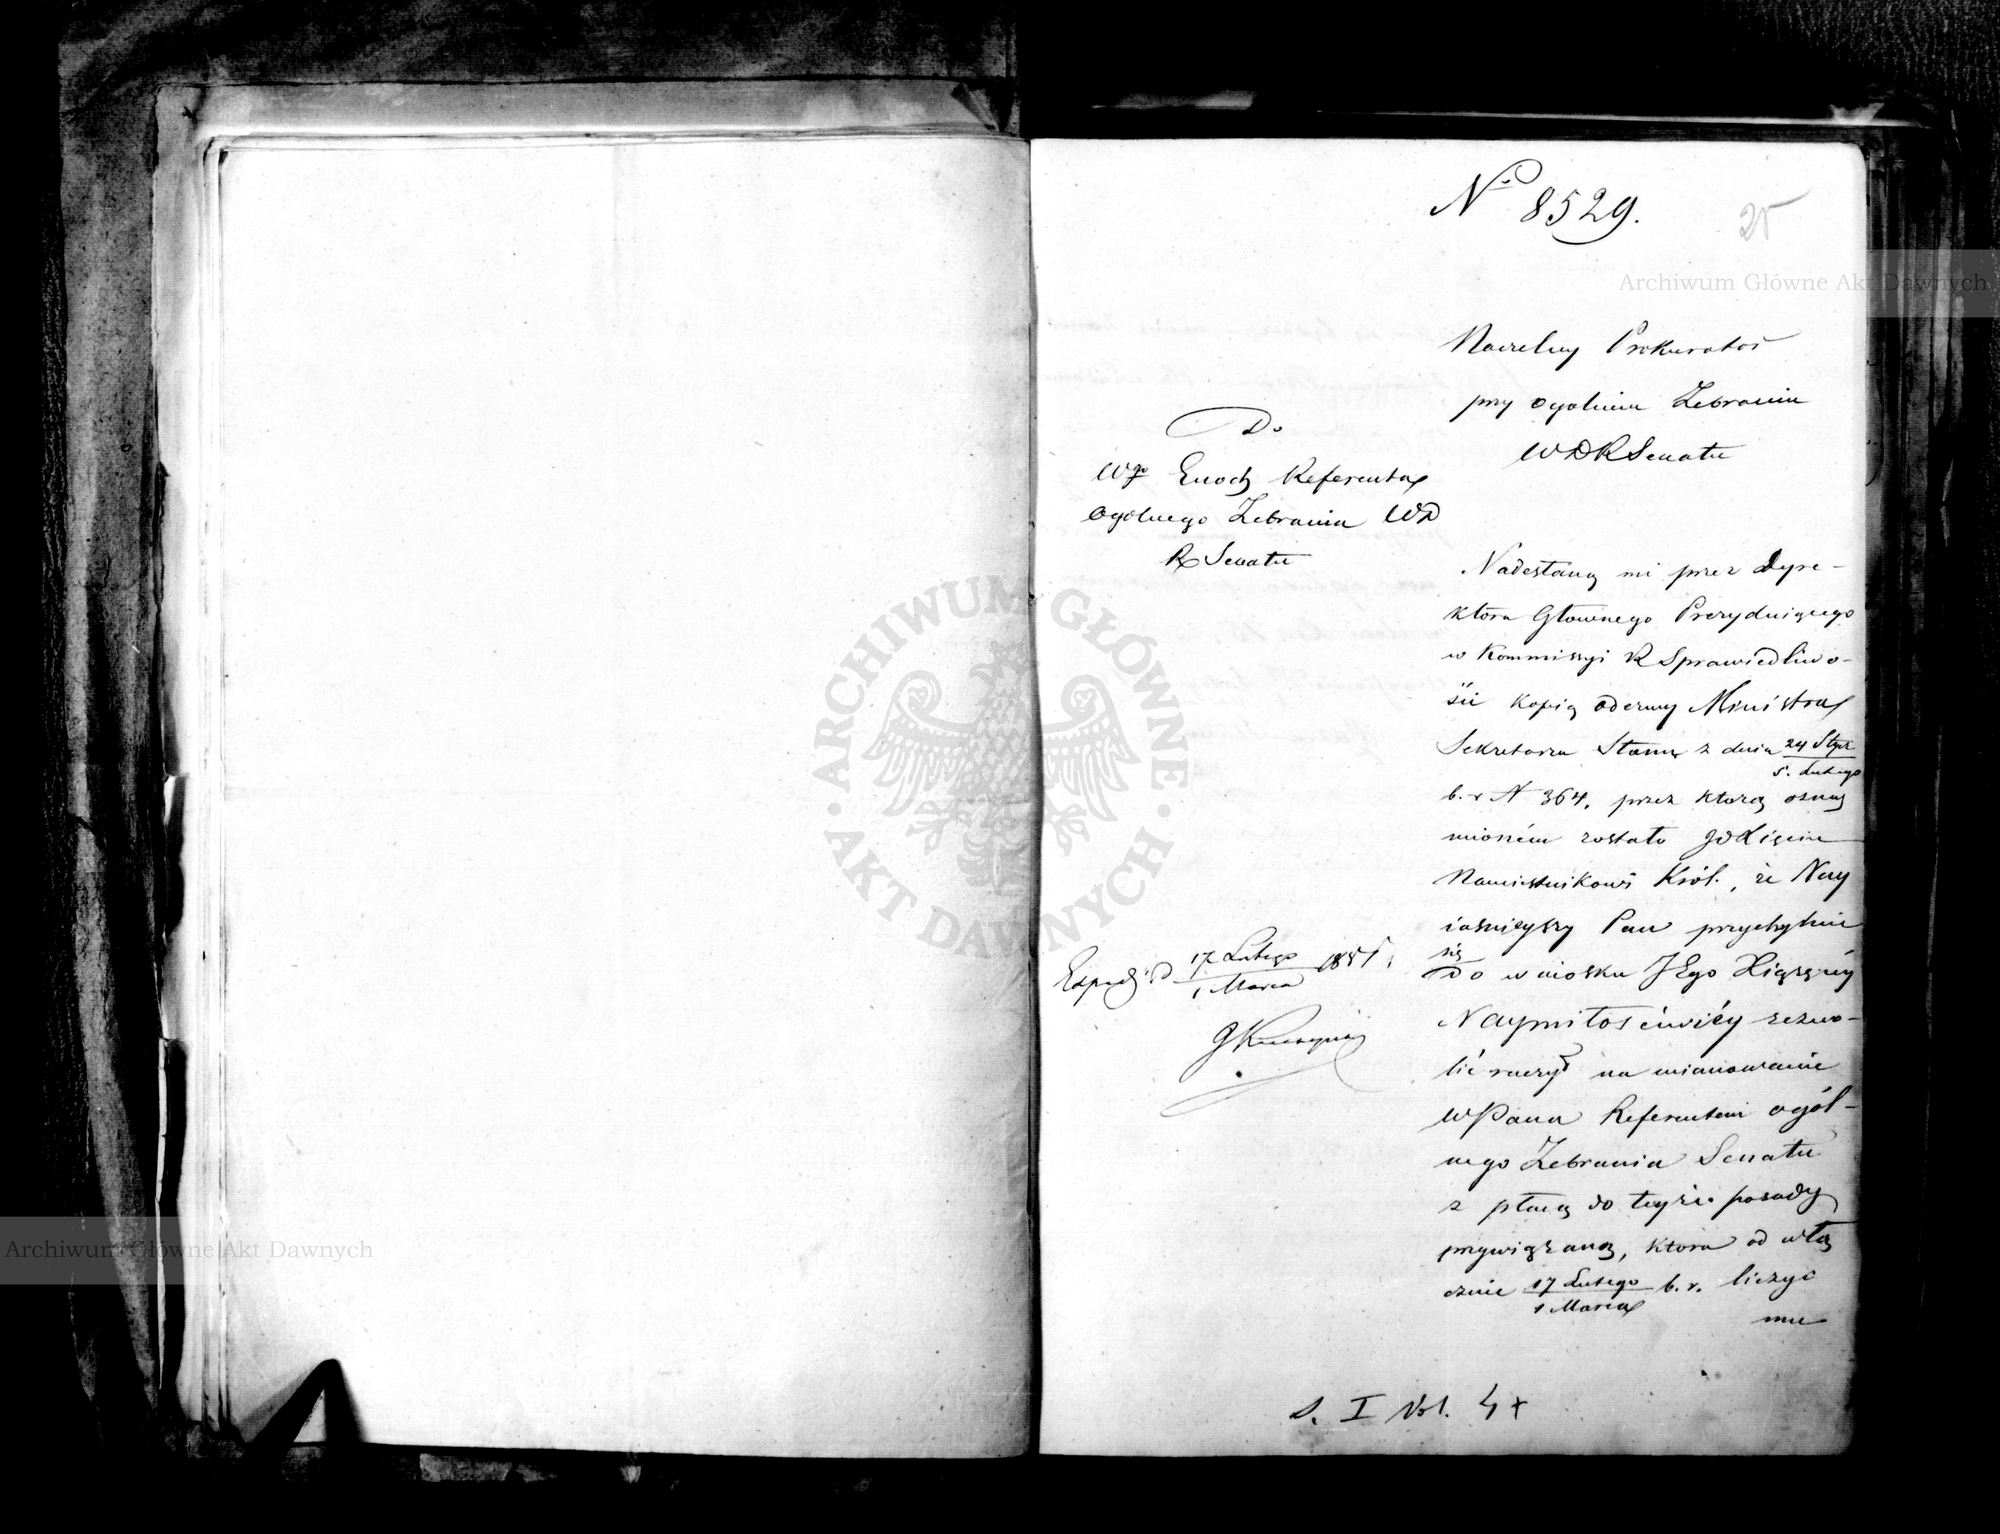 No 8529.
25
Archiwum Główne Akt Dawnych
Naczelny Prokurator
przy ogólnem Zebraniu
WDRSenatu
Do
Wgo Enoch Referenta
ogólnego Zebrania WD
R Senatu
Nadesłaną mi przez Dyre-
ktora Głównego Prezydującego
w Kommissyi R Sprawiedliwo-
ści kopią odezwy Ministra
Sekretarza Stanu z dnia 24 Stycz
5. Lutego
b. r N 364, przez którą oznay
mioném zostało JO Xięciu
Namiestnikowi Król., że Nay
iaśnieyszy Pan przychylnie
się
do wniosku JEgo Xiążęcéy
Naymiłościwiéy zezwo-
lić raczył na mianowanie
WPana Referentem ogól-
nego Zebrania Senatu
z płacą do teyże posady
przywiązaną, która od włą
cznie 17 Lutego b. r. liczyć
1 Marca
mu
Exped: d 17 Lutego 1851.
1 Marca
S. I Vol. 4
ARCHIWUM GŁÓWNE AKT DAWNYCH
Archiwum Główne Akt Dawnych